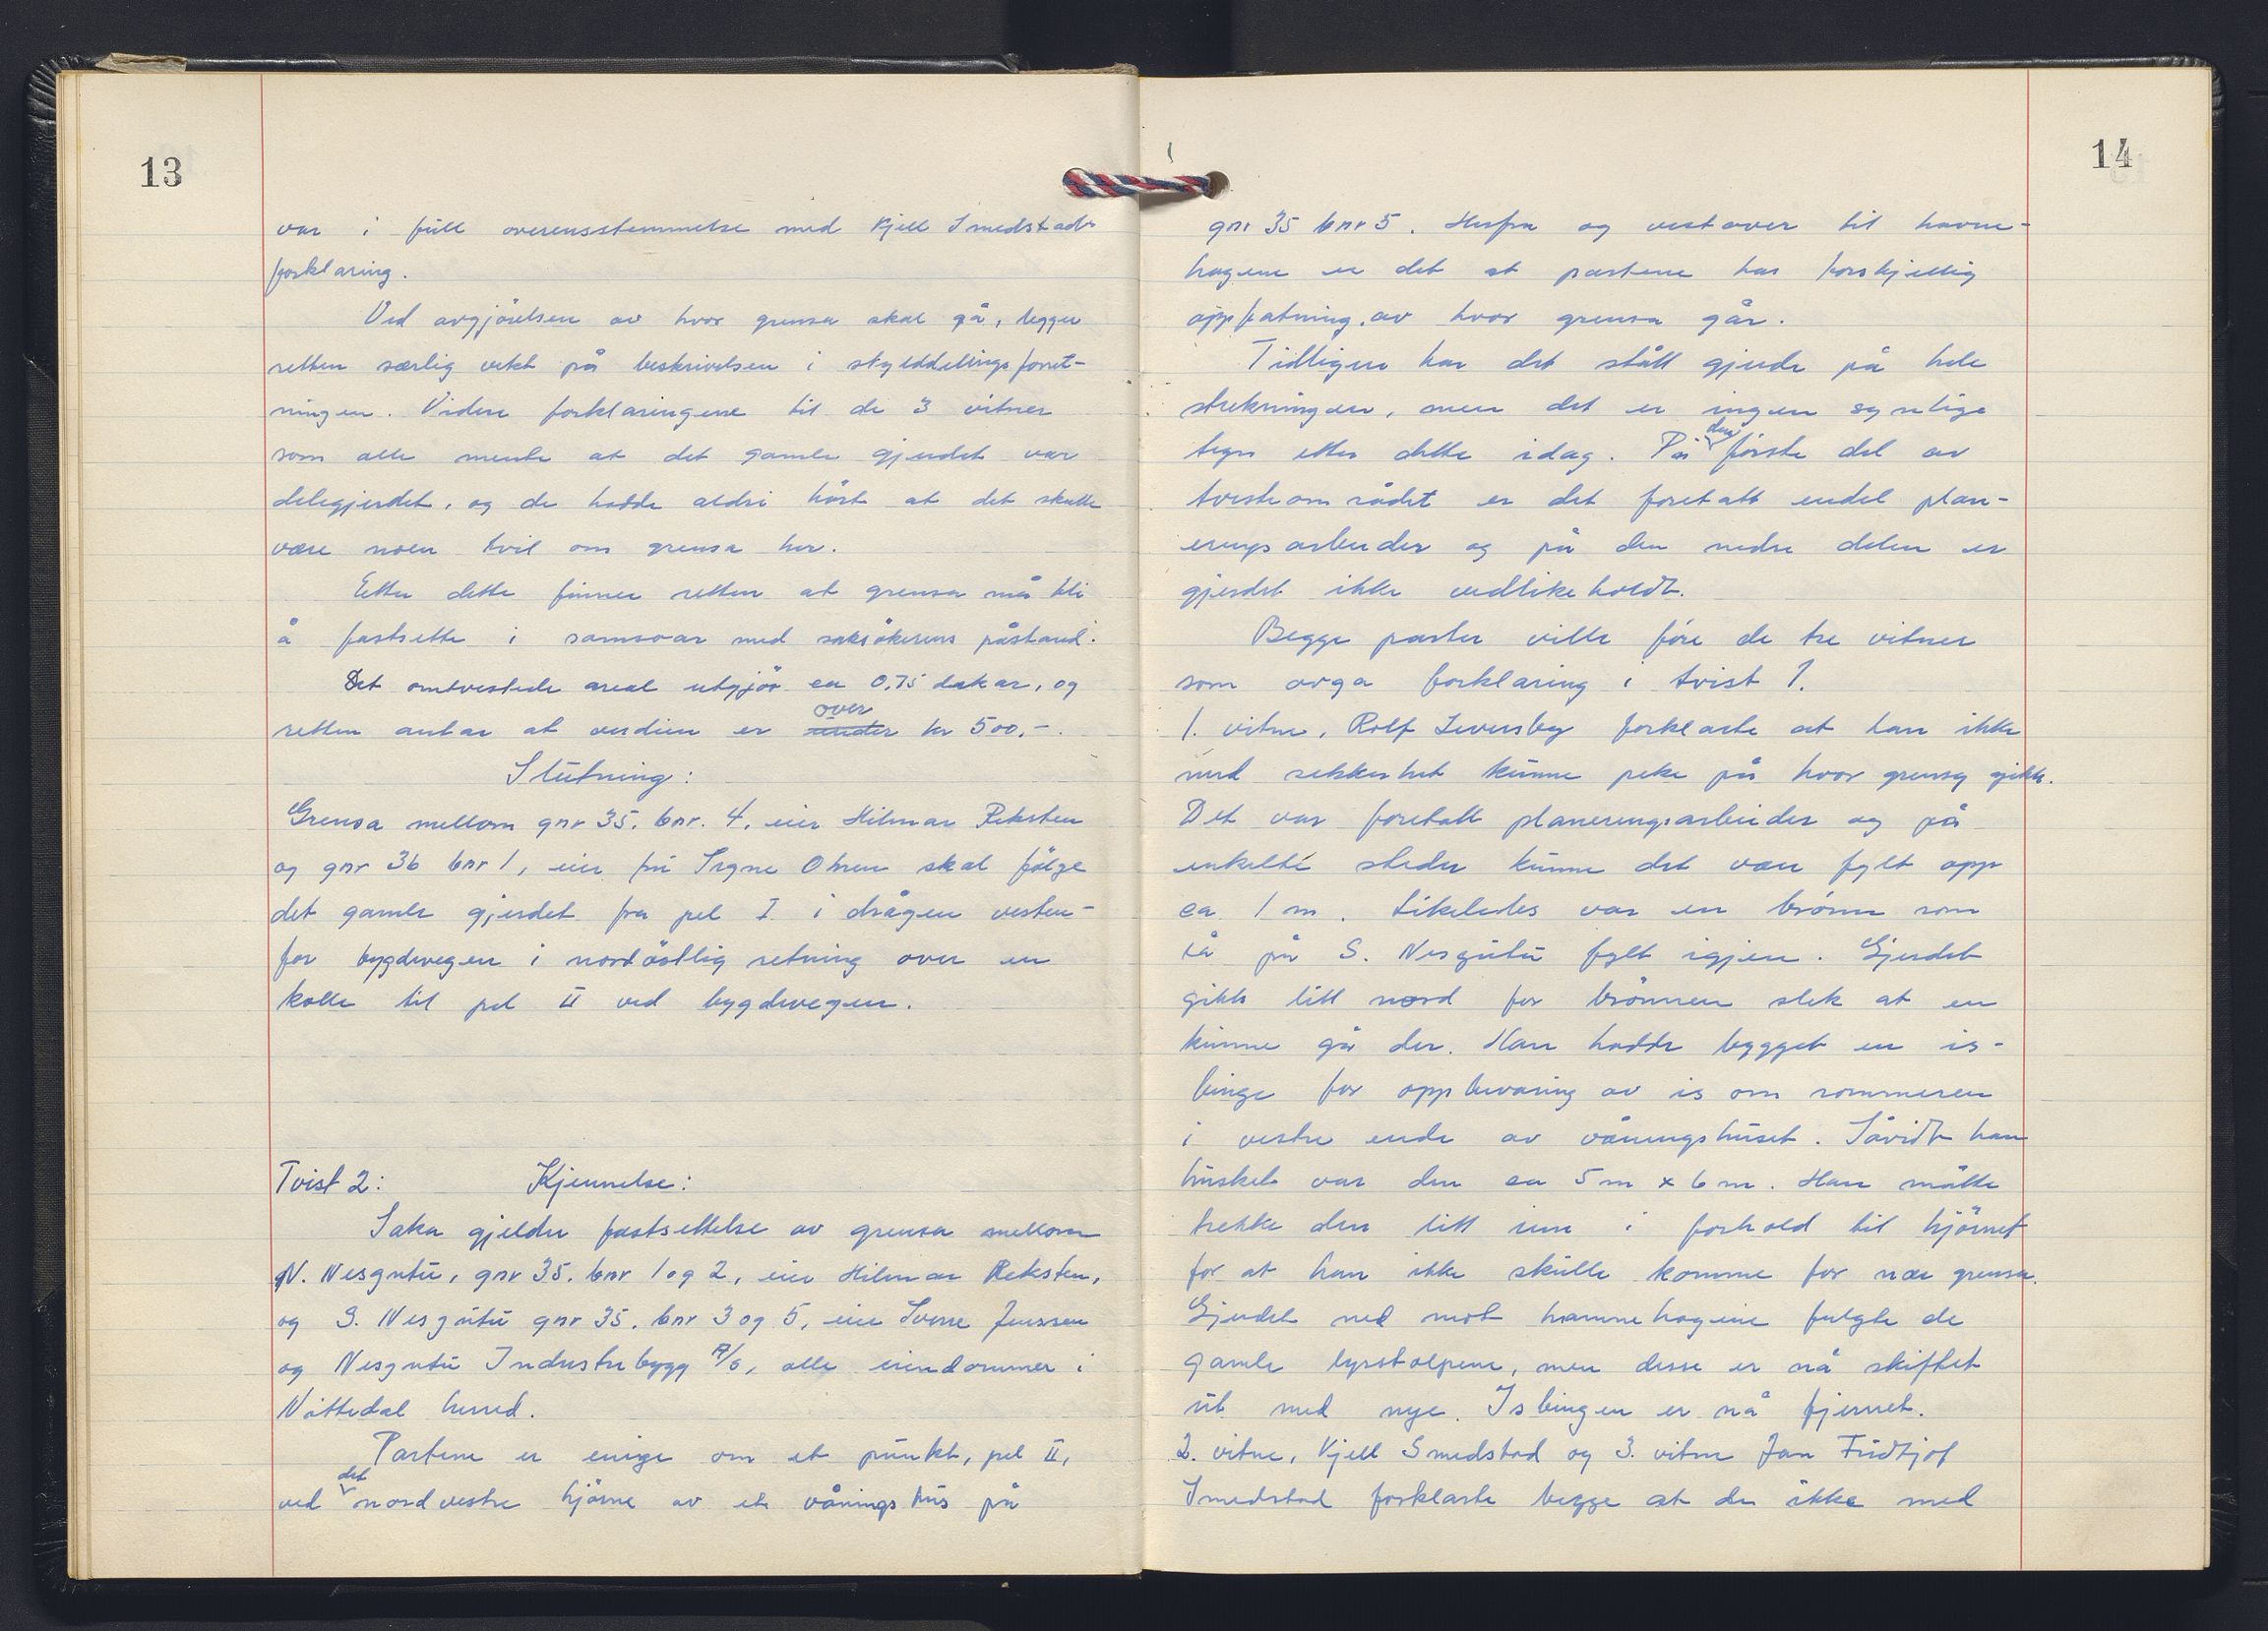 13
var i full overensstemmelse med Kjell Smedstads
forklaring.
Ved avgjörelsen av hvor grensa skal gå, legger
retten særlig vekt på beskrivelsen i skylddelingsforret-
ningen. Videre forklaringene til de 3 vitner
som alle mente at det gamle gjerdet var
delegjerdet, og de hadde aldri hört at det skulle
være noen tvil om grensa her.
Etter dette finner retten at grensa må bli
å fastsette i samsvar med saksökerens påstand.
Det omtvistede areal utgjör ca 0,75 dekar, og
retten antar at verdien er under over kr 500,-.
Slutning:
Grensa mellom gnr 35, bnr. 4, eier Hilmar Reksten
og gnr 36 bnr 1, eier fru Signe Ohren skal fölge
det gamle gjerdet fra pel I i drågen vesten-
for bygdevegen i nordöstlig retning over en
kolle til pel II ved bygdevegen.
Tvist 2: Kjennelse:
Saka gjelder fastsettelse av grensa mellom
N. Nesgutu, gnr 35, bnr 1 og 2, eier Hilmar Reksten,
og S. Nesgutu gnr 35, bnr 3 og 5, eier Sverre Jenssen
og Nesgutu Industribygg A/S, alle eiendommer i
Nöttedal herred.
Partene er enige om et punkt, pel II,
ved det nordvestre hjörne av et våningshus på
14
gnr 35 bnr 5. Herfra og vestover til havne-
hagene er det at partene har forskjellig
oppfatning av hvor grensa går.
Tidligere har det stått gjerde på hele
strekningen, men det er ingen synlige
tegn etter dette idag. På den förste del av
tvisteområdet er det foretatt endel plan-
eringsarbeider og på den nedre delen er
gjerdet ikke vedlikeholdt.
Begge parter ville före de tre vitner
som avga forklaring i tvist 1.
1. vitne, Rolf Leversby forklarte at han ikke
med sikkerhet kunne peke på hvor grensa gikk.
Det var foretatt planeringsarbeider og på
enkelte steder kunne det være fylt opp
ca 1 m. Likeledes var en brönn som
lå på S. Nesgutu fylt igjen. Gjerdet
gikk litt nord for brönnen slik at en
kunne gå der. Han hadde bygget en is-
binge for oppbevaring av is om sommeren
i vestre ende av våningshuset. Såvidt han
husket var den ca 5 m x 6 m. Han måtte
trekke den litt inn i forhold til hjörnet
for at han ikke skulle komme for nær grensa.
Gjerdet ned mot havnehagene fulgte de
gamle lysstolpene, men disse er nå skiftet
ut med nye. Isbingen er nå fjernet.
2. vitne, Kjell Smedstad og 3. vitne Jan Fridtjof
Smedstad forklarte begge at de ikke med